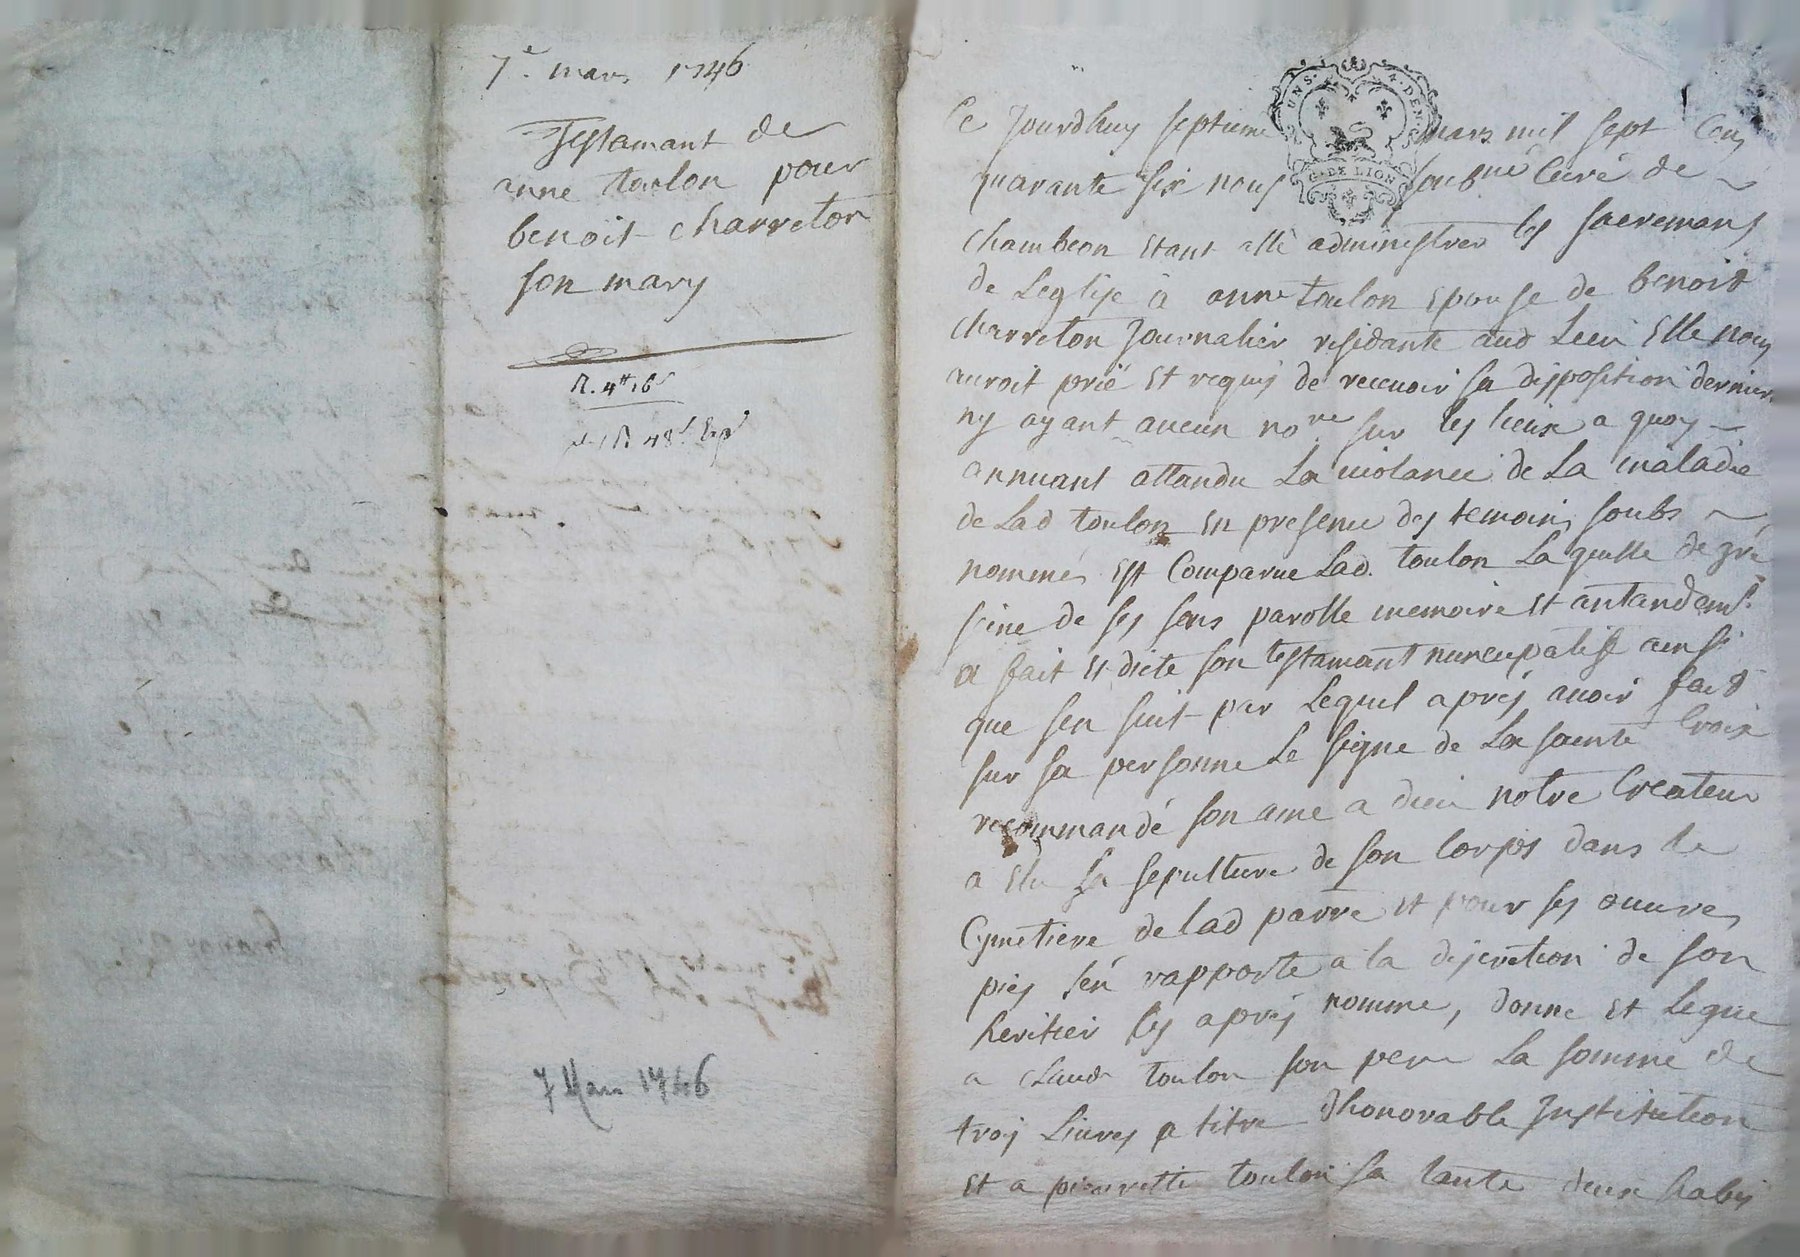 7e. mars 1746
Testamant de
anne toulon pour
benoit charreton
son mary
R. 4tt 16s
7 Mars 1746
UN S. 4. DEN.
G. DE LION
Ce Jourdhuy septieme mars mil sept Cens
quarante six nous soubné Curé de
chambeon etant allé administrer les sacremans
de Leglise a anne toulon epouse de benoit
charreton Journalier residante aud Lieu Elle nous
auroit prié et requis de receuoir sa disposition derniere
ny ayant aucun nore sur les lieux a quoy
annuant attandu La uiolance de La maladie
de Lad toulon en presence des temoins soubs
nommés est Comparue Lad. toulon La quelle de gré
seine de ses sens parolle memoire et antandemt
a fait et dicte son testamant nuncupatif ainsi
que sen suit par Lequel apres auoir fait
sur sa personne Le signe de La sainte Croix
recommandé son ame a dieu notre Createur
a elu sa sepulture de son Corps dans le
Cymetiere de lad parre et pour ses ouures
pies sen rapporte a la discretion de son
heritier cy apres nomme, donne et legue
a claude toulon son pere La somme de
trois Liures a titre dhonorable Institution
et a pierrette toulon sa tante deux habis